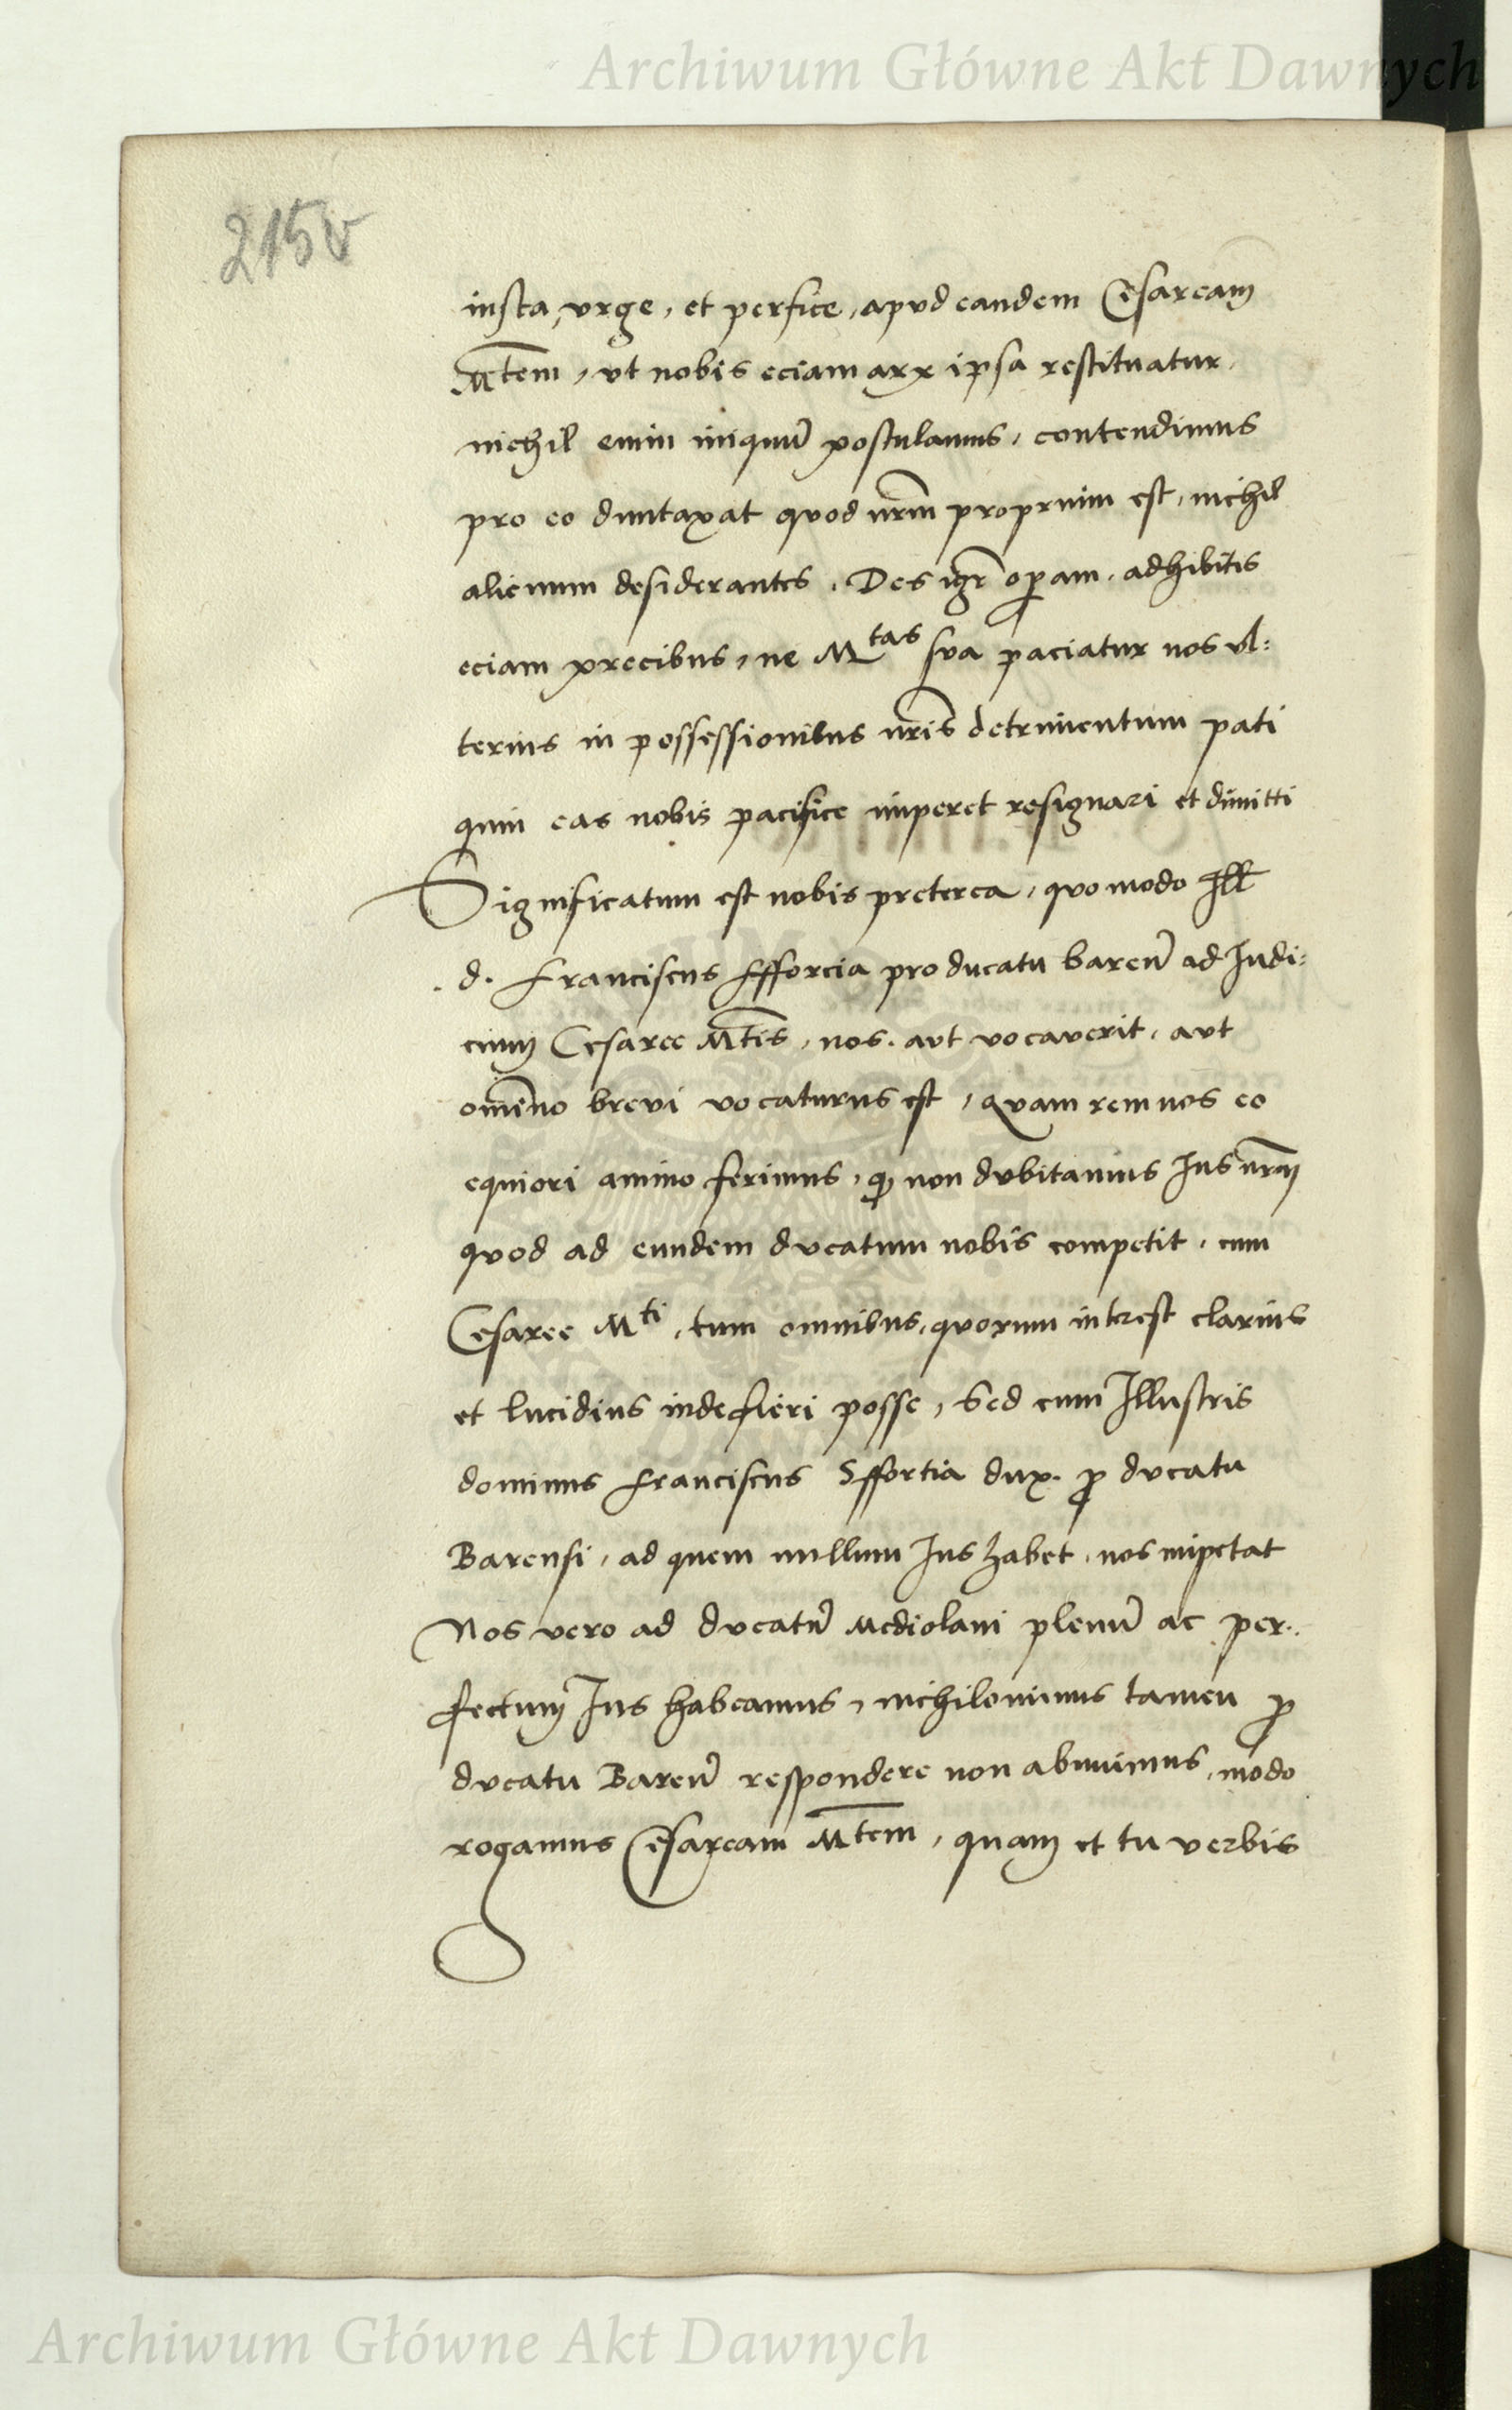 Archiwum Główne Akt Dawnych
215v
insta, vrge, et perfice, apvd eandem Cesaream
Mtem, vt nobis eciam arx ipsa restituatur.
nichil enim iniquu͂ postulamus, contendimus
pro eo duntaxat qvod nr͂m proprium est, nichil
alienum desiderantes. Des igr͂ op̲am, adhibitis
eciam precibus, ne Mtas sva paciatur nos vl:
terius in possessionibus nr͂is detrimentum pati
quin eas nobis pacifice imperet resignari et dimitti
Significatum est nobis preterea, qvo modo Ill
d. Franciscus Sfforcia pro ducatu baren͂ ad Iudi:
cium Cesaree Mtis, nos. avt vocaverit, avt
om͂ino brevi vocaturus est, qvam rem nos eo
equiori animo ferimus, q̲ non dvbitamus Ius nr͂m
qvod ad eundem dvcatum nobis competit, cum
Cesaree Mti, tum omnibus, qvorum interest clarius
et lucidius inde fieri posse, Sed cum Illustris
dominus Franciscus Sffortia dux. p̲ dvcatu
Barensi, ad quem nullum Ius habet, nos impetat
Nos vero ad dvcatu͂ Mediolani plenu͂ ac per:
fectum Ius habeamus, nichilominus tamen p̲
dvcatu Baren͂ respondere non abnuimus, modo
rogamus Cesaream Mtem, quam et tu verbis
Archiwum Główne Akt Dawnych